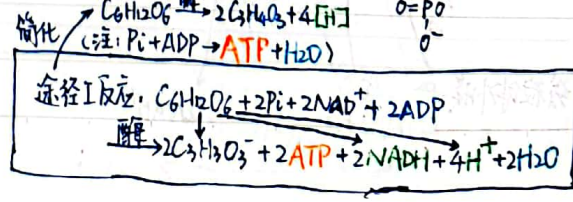 C6H12O6 酶→ 2C3H4O3+4[H]
简化
(注:Pi+ADP→ATP+H2O)
O=PO
O-
途径I反应: C6H12O6+2Pi+2NAD⁺+2ADP
酶→2C3H3O3⁻+2ATP+2NADH+4H⁺+2H2O